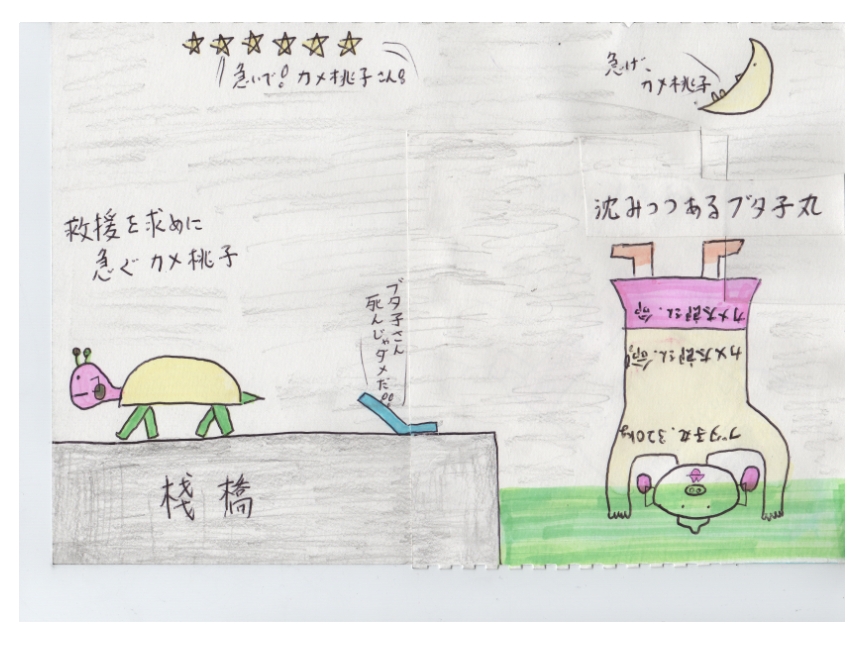 急いで!カメ桃子さん!!
急げ、
カメ桃子
沈みつつあるブタ子丸
救援を求めに
急ぐカメ桃子
ブタ子さん
死んじゃダメだ!!
カメ太郎さん・命
カメ太郎さん・命!
ブタ子丸・320kg
桟橋